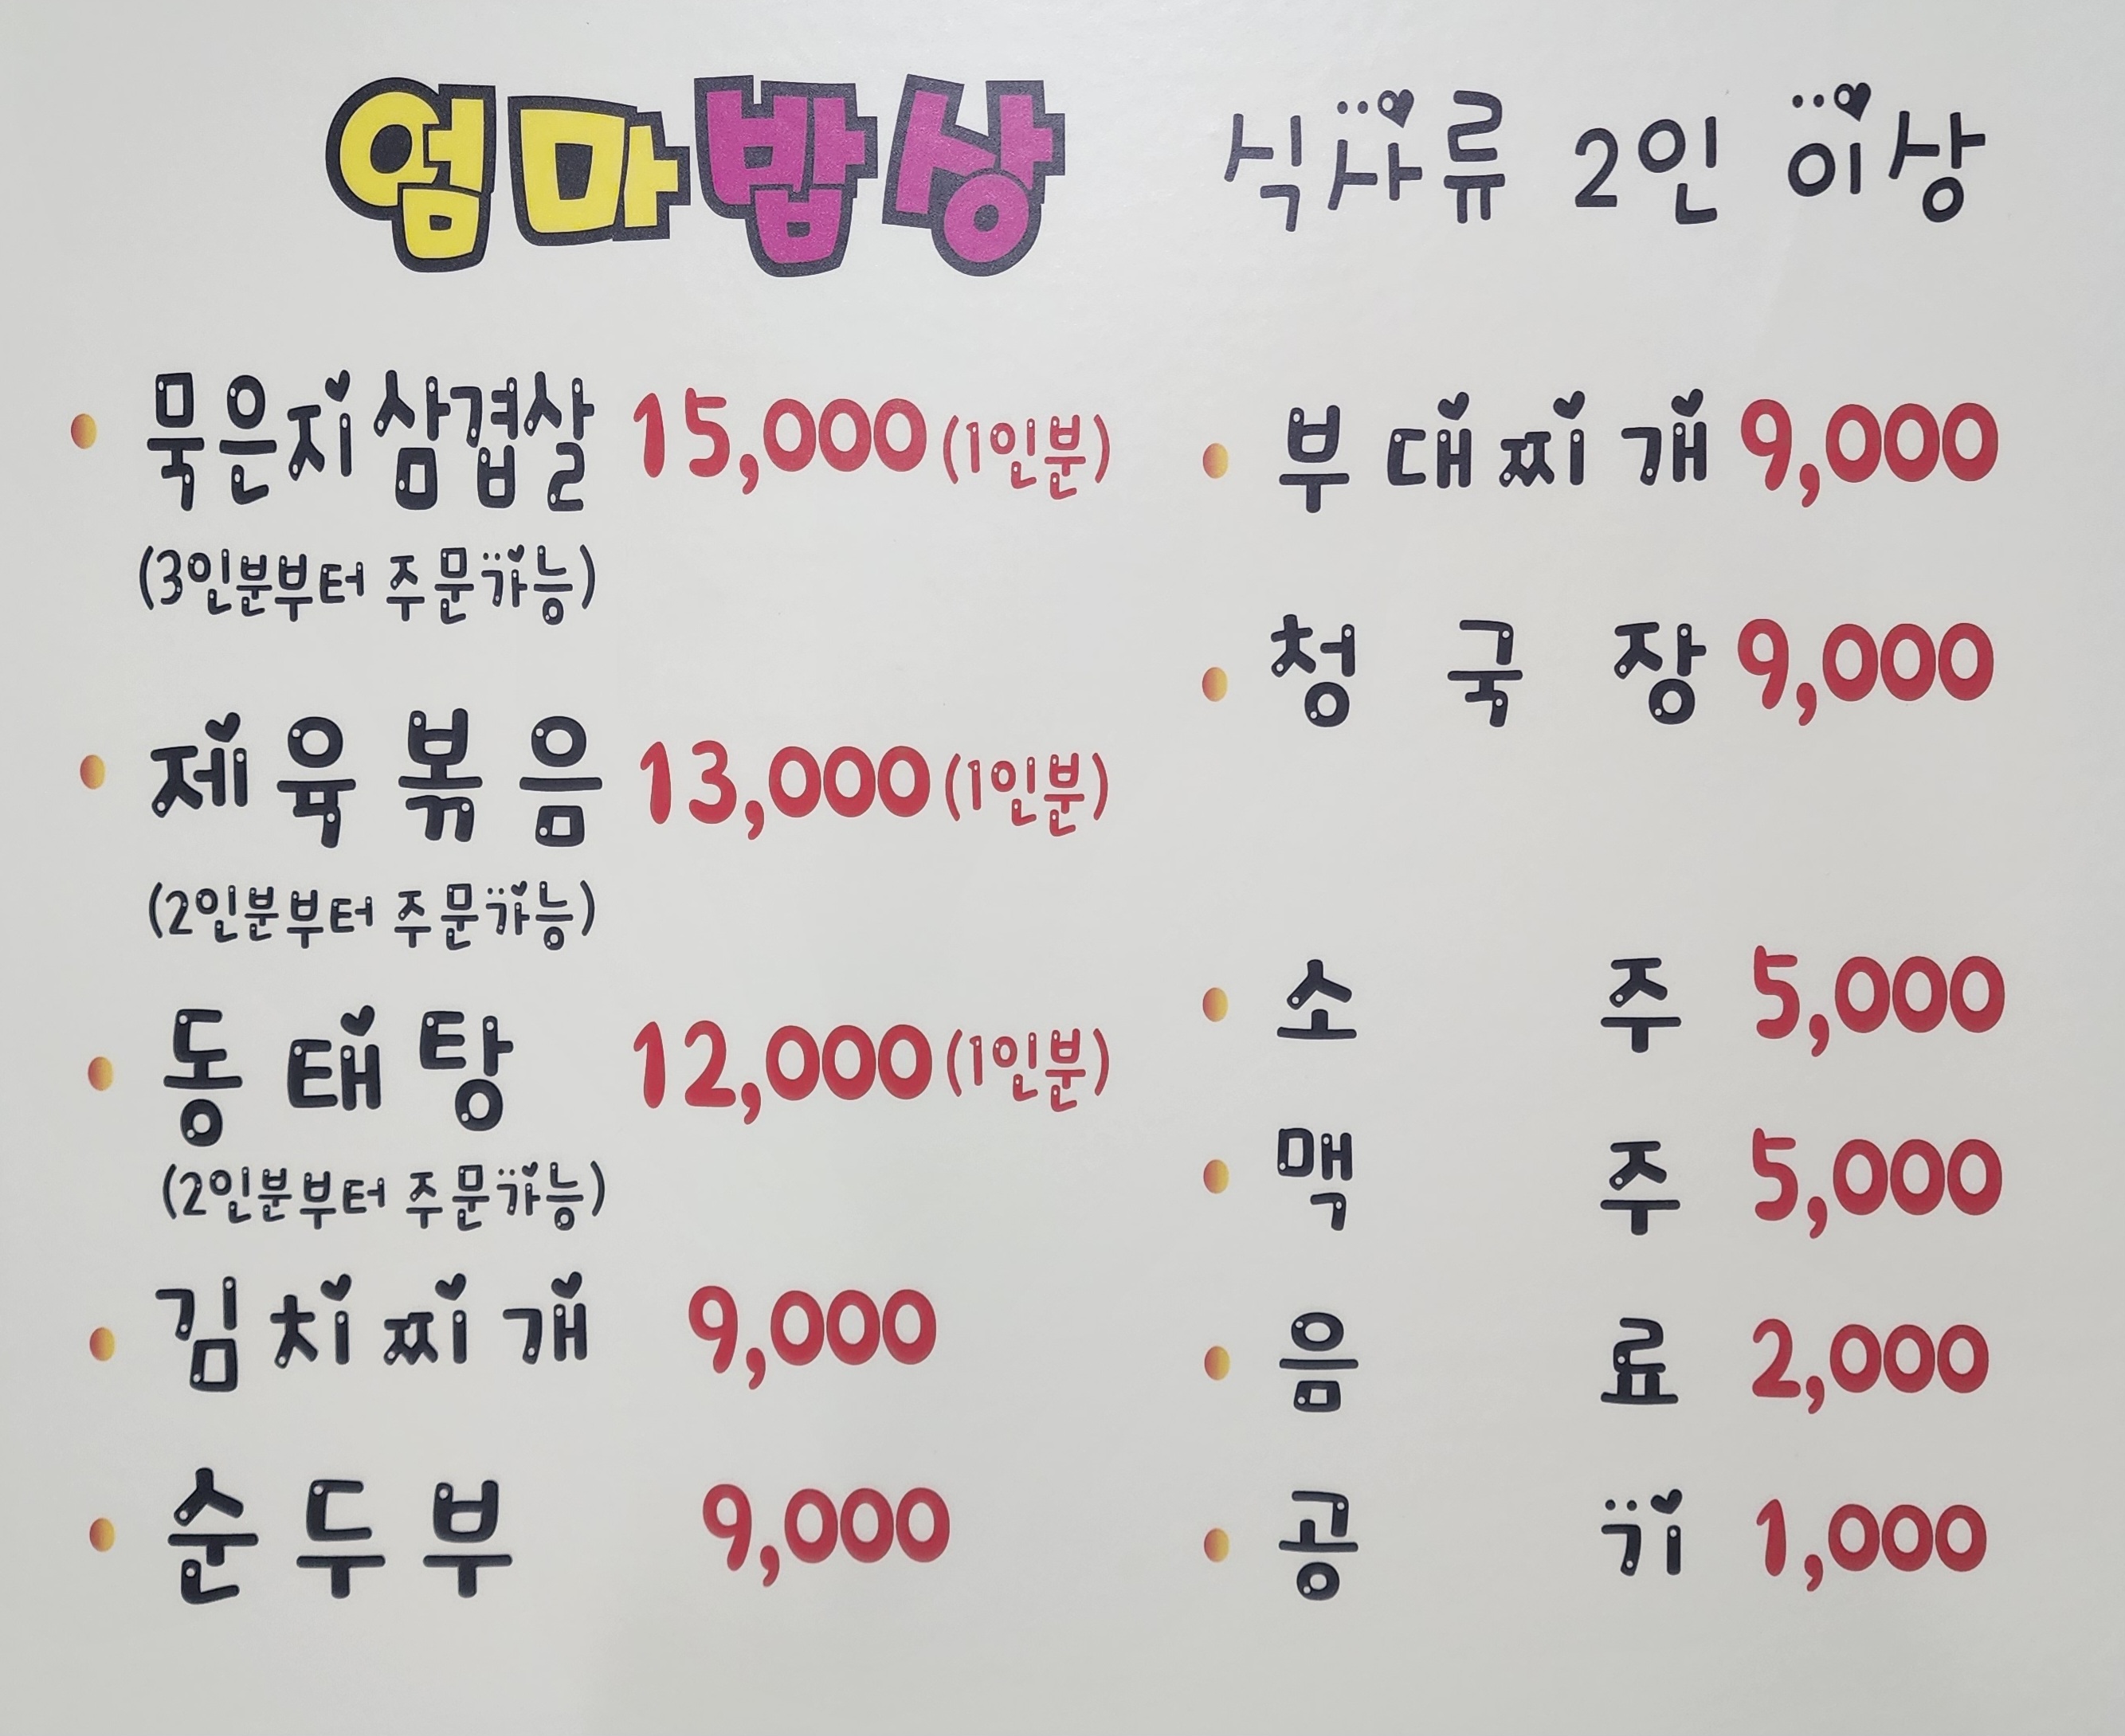 엄마밥상
식사류 2인 이상
묵은지삼겹살 15,000(1인분)
(3인분부터 주문가능)
제육볶음 13,000(1인분)
(2인분부터 주문가능)
동태탕 12,000(1인분)
(2인분부터 주문가능)
김치찌개 9,000
순두부 9,000
부대찌개 9,000
청국장 9,000
소주 5,000
맥주 5,000
음료 2,000
공기 1,000